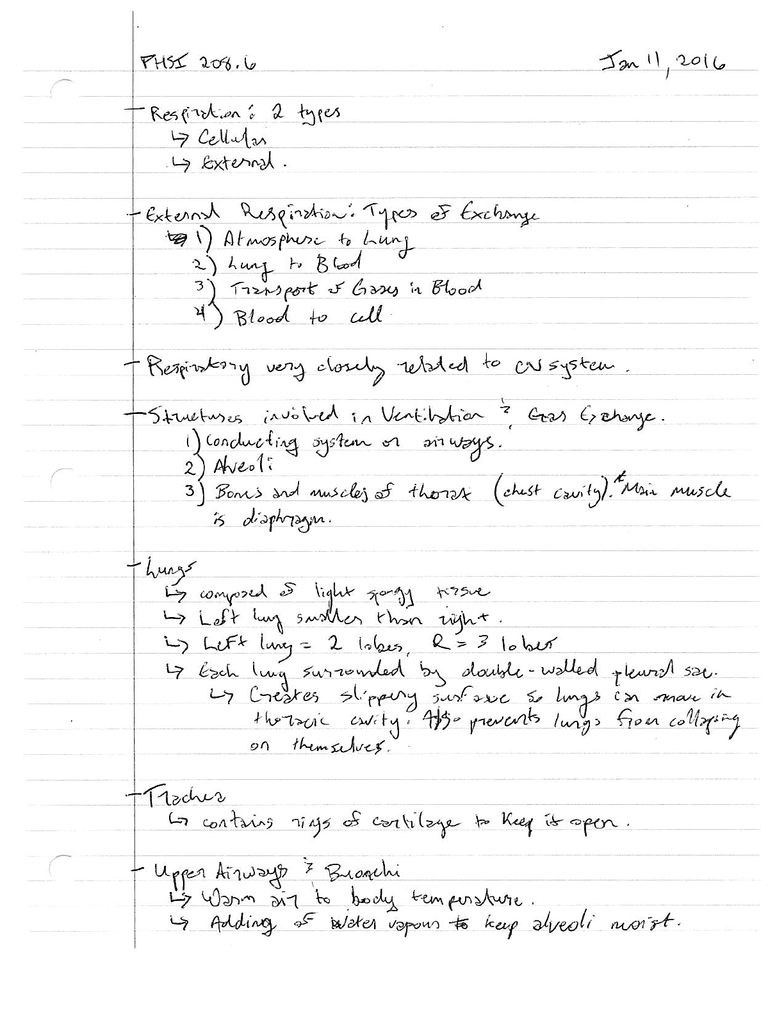 PHSI 208.6 Jan 11, 2016
- Respiration: 2 types
↳ Cellular
↳ External.
- External Respiration: Types of Exchange
1) Atmosphere to Lung
2) Lung to Blood
3) Transport of Gases in Blood
4) Blood to cell
- Respiratory very closely related to CV system.
- Structures involved in Ventilation & Gas Exchange.
1) Conducting system or airways.
2) Alveoli
3) Bones and muscles of thorax (chest cavity). * Main muscle
is diaphragm.
- Lungs
↳ composed of light spongy tissue
↳ Left lung smaller than right.
↳ Left lung = 2 lobes, R = 3 lobes
↳ Each lung surrounded by double-walled pleural sac.
↳ Creates slippery surface so lungs can move in
thoracic cavity. Also prevents lungs from collapsing
on themselves.
- Trachea
↳ contains rings of cartilage to keep it open.
- Upper Airways & Bronchi
↳ Warm air to body temperature.
↳ Adding of water vapour to keep alveoli moist.